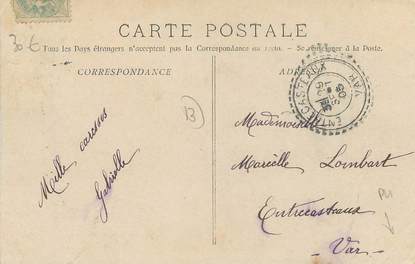 30 €
CARTE POSTALE
Tous les Pays étrangers n'acceptent pas la Correspondance au recto. - Se renseigner à la Poste.
CORRESPONDANCE
ENTRECASTEAUX
VAR
13
Mademoiselle
Marcelle Lombart
Entrecasteaux
- Var -
Mille caresses
Gabrielle